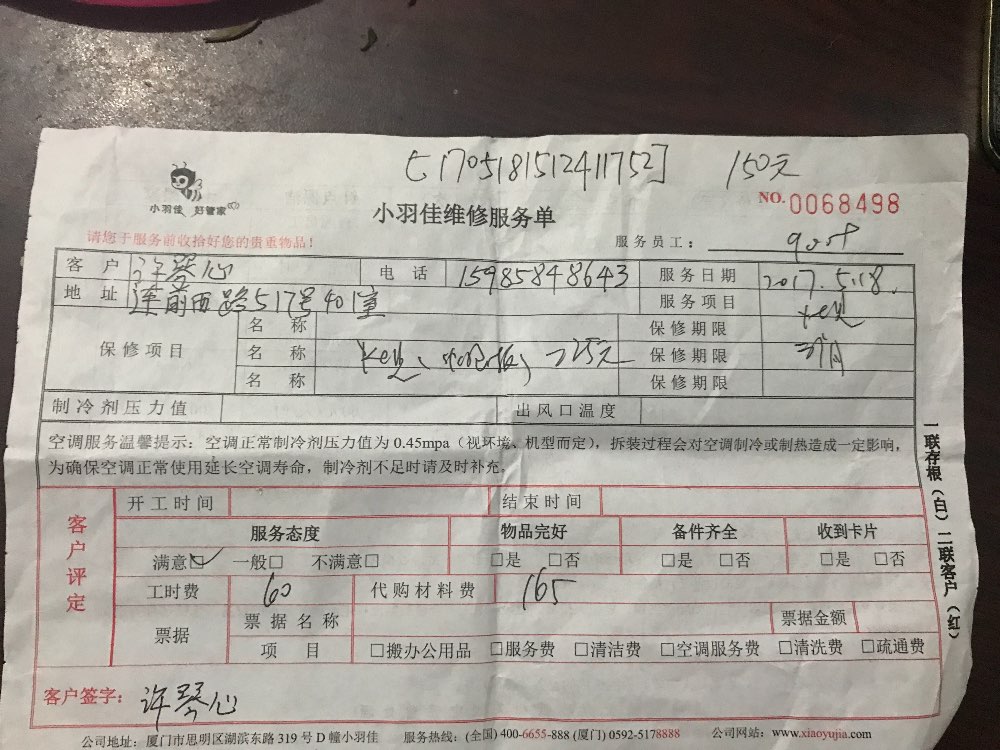 [1705181512411752] 150元
小羽佳 好管家
NO. 0068498
小羽佳维修服务单
请您于服务前收拾好您的贵重物品！
服务员工：
客户 许琴心 电话 15985848643 服务日期 2017.5.18.
地址 莲前西路517号401室 服务项目
保修项目 名称 保修期限
名称 225元 保修期限 3个月
名称 保修期限
制冷剂压力值 出风口温度
空调服务温馨提示：空调正常制冷剂压力值为 0.45mpa（视环境、机型而定），拆装过程会对空调制冷或制热造成一定影响，
为确保空调正常使用延长空调寿命，制冷剂不足时请及时补充。
一联存根（白）二联客户（红）
客户评定
开工时间 结束时间
服务态度 物品完好 备件齐全 收到卡片
满意☑ 一般□ 不满意□ □是 □否 □是 □否 □是 □否
工时费 60 代购材料费 165
票据 票据名称 票据金额
项目 □搬办公用品 □服务费 □清洁费 □空调服务费 □清洗费 □疏通费
客户签字：许琴心
公司地址：厦门市思明区湖滨东路 319 号 D 幢小羽佳 服务热线：(全国) 400-6655-888 (厦门) 0592-5178888 公司网站：www.xiaoyujia.com